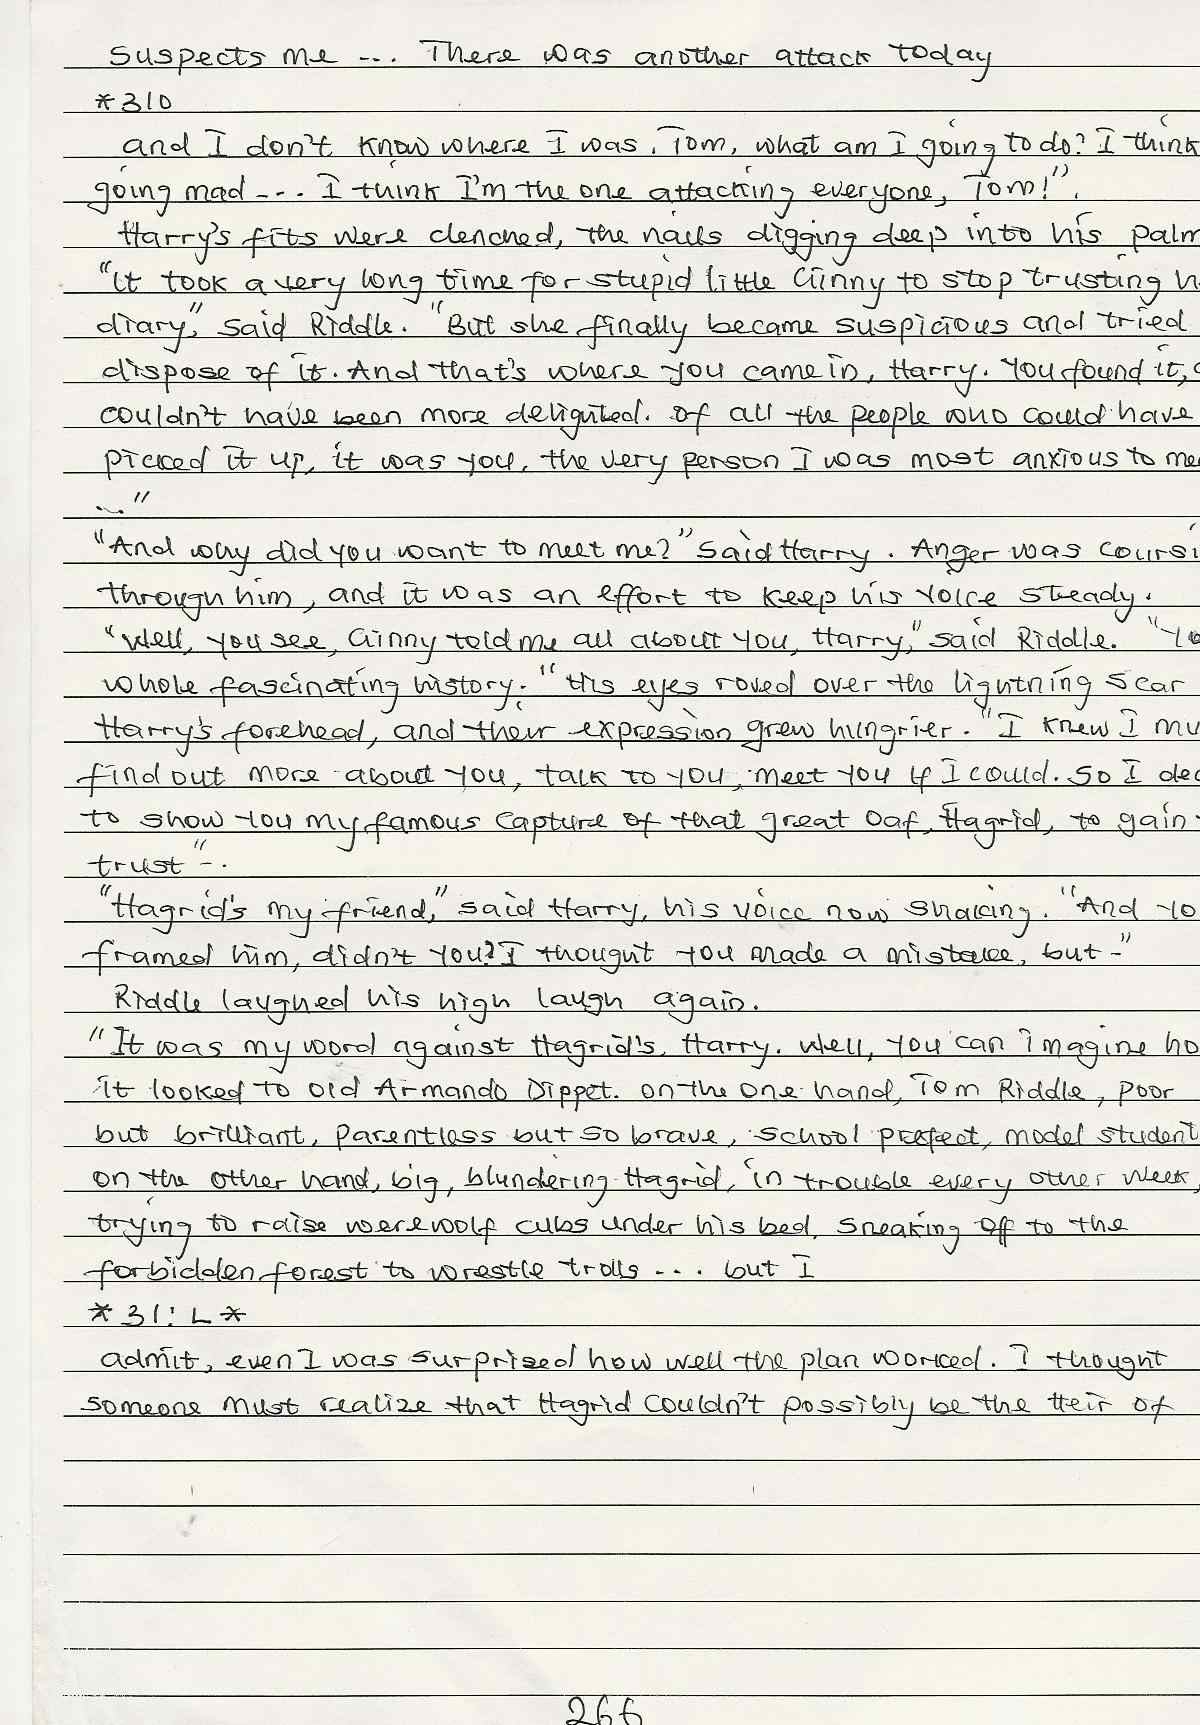 suspects me --.. There was another attack today
*310
and I don't know where I was. Tom, what am I going to do? I think
going mad --.. I think I'm the one attacking everyone, Tom!".
Harry's fits were clenched, the nails digging deep into his palm
"It took a very long time for stupid little Ginny to stop trusting h
diary," said Riddle. "But she finally became suspicious and tried
dispose of it. And that's where you came in, Harry. You found it,
couldn't have been more delighted. of all the people who could have
picked it up, it was you, the very person I was most anxious to me
..."
"And why did you want to meet me?" said Harry. Anger was coursi
through him, and it was an effort to keep his voice steady.
"Well, you see, Ginny told me all about you, Harry," said Riddle. "Yo
whole fascinating history." His eyes roved over the lightning scar
Harry's forehead, and their expression grew hungrier. "I knew I mu
find out more about you, talk to you, meet you if I could. So I dec
to show you my famous capture of that great oaf, Hagrid, to gain
trust"-.
"Hagrid's my friend," said Harry, his voice now shaking. "And yo
framed him, didn't you? I thought you made a mistake, but-"
Riddle laughed his high laugh again.
"It was my word against Hagrid's, Harry. Well, you can imagine ho
it looked to old Armando Dippet. on the one hand, Tom Riddle, poor
but brilliant, parentless but so brave, school prefect, model student
on the other hand, big, blundering Hagrid, in trouble every other week,
trying to raise werewolf cubs under his bed, sneaking off to the
forbidden forest to wrestle trolls ... but I
*31! L*
admit, even I was surprised how well the plan worked. I thought
someone must realize that Hagrid couldn't possibly be the Heir of
266